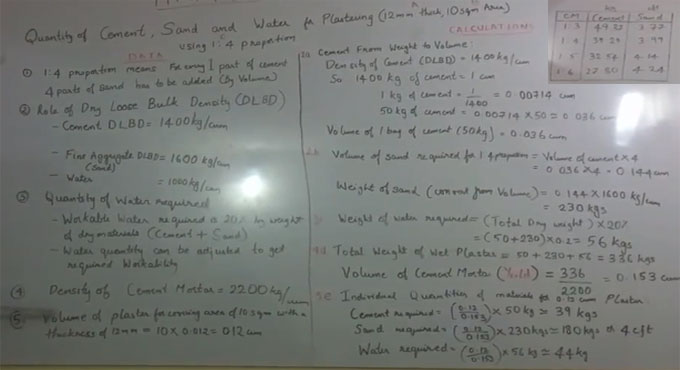 Quantity of Cement, Sand and Water for Plastering (12mm thick, 10sqm Area)
using 1:4 proportion
DATA
① 1:4 proportion means for every 1 part of cement
4 parts of sand has to be added (By Volume)
② Role of Dry Loose Bulk Density (DLBD)
- Cement DLBD = 1400 kg/cum
- Fine Aggregate DLBD = 1600 kg/cum
(Sand)
- Water = 1000 kg/cum
③ Quantity of Water Required
- Workable Water required is 20% by weight
of dry materials (Cement + Sand)
- Water quantity can be adjusted to get
required Workability
④ Density of Cement Mortar = 2200 kg/cum
⑤ Volume of plaster for covering area of 10 sqm with a
thickness of 12mm = 10 x 0.012 = 0.12 cum
CALCULATIONS
Cement From Weight to Volume:
Density of Cement (DLBD) = 1400 kg/cum
So 1400 kg of cement = 1 cum
1 kg of cement = 1/1400 = 0.00714 cum
50 kg of cement = 0.00714 x 50 = 0.036 cum
Volume of 1 bag of cement (50kg) = 0.036 cum
Volume of sand required for 1:4 proportion = Volume of cement x 4
= 0.036 x 4 = 0.144 cum
Weight of sand (convert from Volume) = 0.144 x 1600 kg/cum
= 230 kgs
Weight of water required = (Total Dry weight) x 20%
= (50+230) x 0.2 = 56 kgs
Total Weight of Wet Plaster = 50 + 230 + 56 = 336 kgs
Volume of Cement Mortar (Yield) = 336/2200 = 0.153 cum
Individual Quantities of materials for 0.12 cum Plaster:
Cement required = (0.12/0.153) x 50 kg ≃ 39 kgs
Sand required = (0.12/0.153) x 230 kgs ≃ 180 kgs or 4 cft
Water required = (0.12/0.153) x 56 kg ≃ 44 kg
CM Cement Sand
1:3
1:4
1:5
1:6